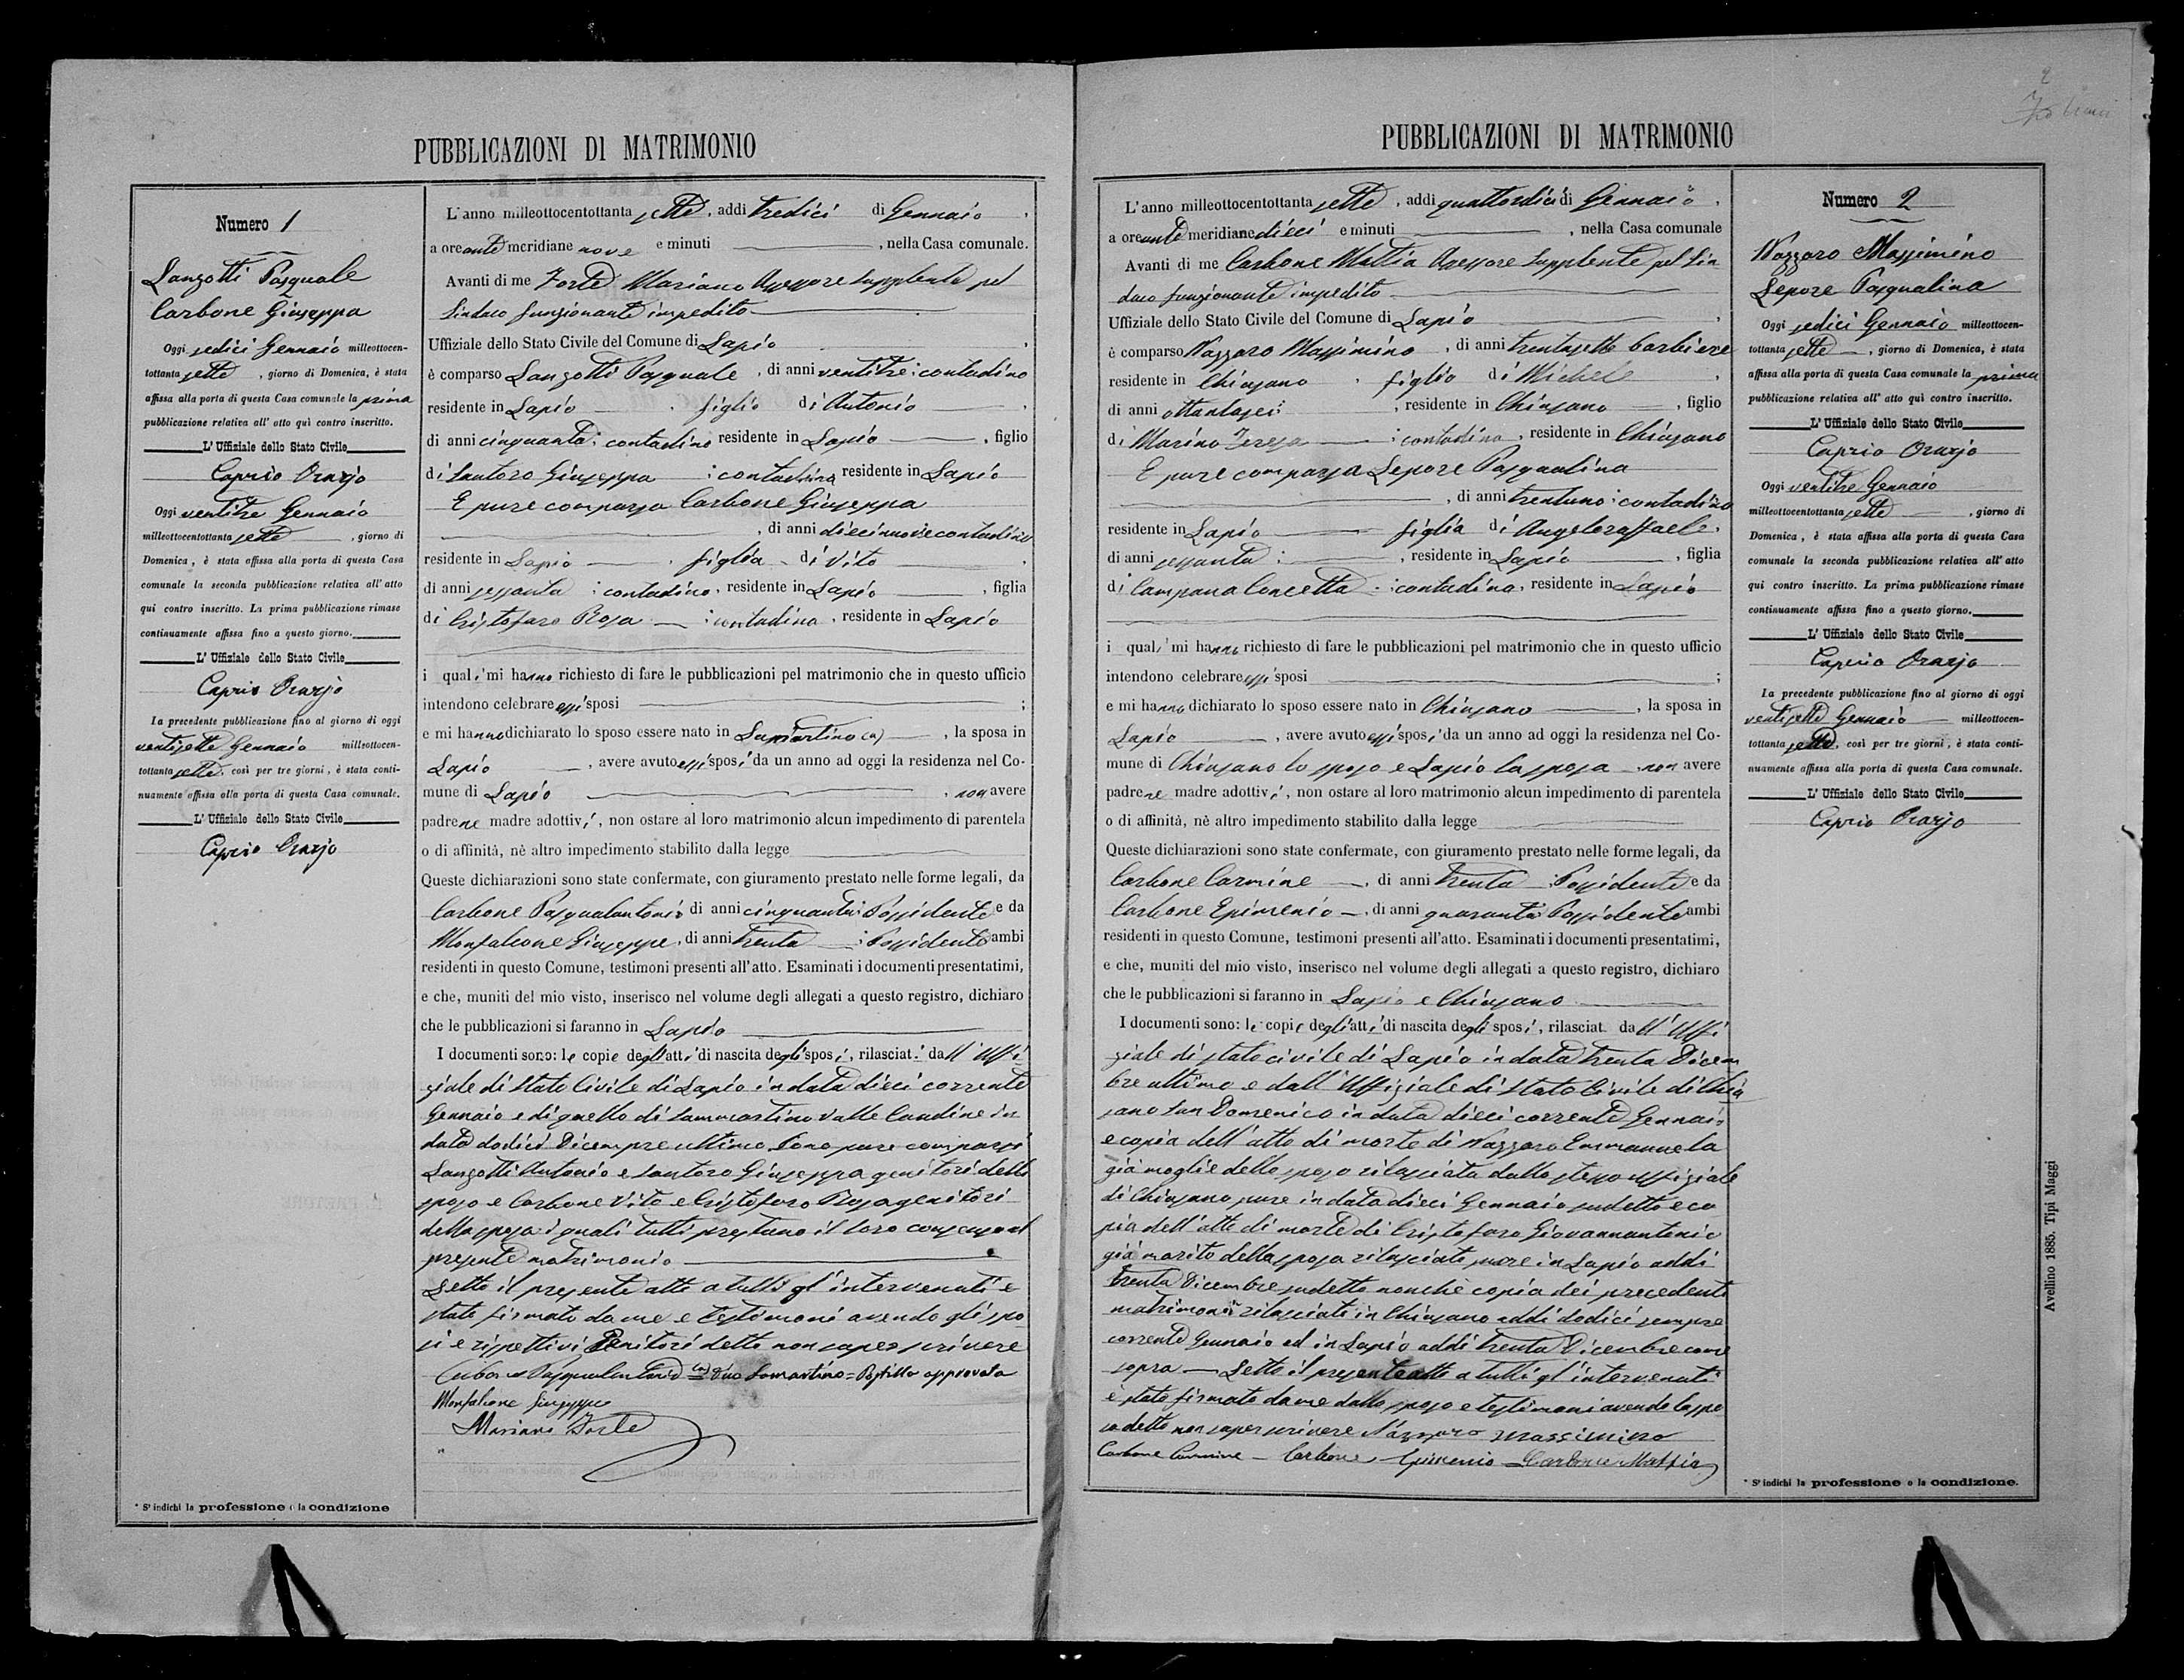 PUBBLICAZIONI DI MATRIMONIO
Numero 1
Lanzotti Pasquale
Carbone Giuseppa
Oggi sedici Gennaio milleottocen-
tottanta sette, giorno di Domenica, è stata
affissa alla porta di questa Casa comunale la prima
pubblicazione relativa all' atto quì contro inscritto.
L' Uffiziale dello Stato Civile
Caprio Orazio
Oggi ventitre Gennaio
milleottocentottanta sette, giorno di
Domenica, è stata affissa alla porta di questa Casa
comunale la seconda pubblicazione relativa all' atto
qui contro inscritto. La prima pubblicazione rimase
continuamente affissa fino a questo giorno.
L' Uffiziale dello Stato Civile
Caprio Orazio
La precedente pubblicazione fino al giorno di oggi
ventisette Gennaio milleottocen-
tottanta sette, così per tre giorni, è stata conti-
nuamente affissa alla porta di questa Casa comunale.
L' Uffiziale dello Stato Civile
Caprio Orazio
* Si indichi la professione o la condizione
L'anno milleottocentottanta sette, addi tredici di Gennaio,
a ore ante meridiane nove e minuti , nella Casa comunale.
Avanti di me Forte Mariano Assessore supplente pel
Sindaco funzionante impedito
Uffiziale dello Stato Civile del Comune di Lapio,
è comparso Lanzotti Pasquale, di anni ventitre: contadino
residente in Lapio, figlio di Antonio,
di anni cinquanta: contadino residente in Lapio, figlio
di Santoro Giuseppa : contadina residente in Lapio
E pure comparsa Carbone Giuseppa
, di anni diecinnove contadina
residente in Lapio, figlia di Vito,
di anni sessanta : contadino, residente in Lapio, figlia
di Cristofaro Rosa : contadina, residente in Lapio
i quali mi hanno richiesto di fare le pubblicazioni pel matrimonio che in questo ufficio
intendono celebrare essi sposi ;
e mi hanno dichiarato lo sposo essere nato in Sammartino (a), la sposa in
Lapio, avere avuto essi sposi da un anno ad oggi la residenza nel Co-
mune di Lapio, non avere
padre ne madre adottivi, non ostare al loro matrimonio alcun impedimento di parentela
o di affinità, nè altro impedimento stabilito dalla legge
Queste dichiarazioni sono state confermate, con giuramento prestato nelle forme legali, da
Carbone Pasqualantonio di anni cinquanta: Possidente e da
Monfalcone Giuseppe, di anni trenta : Possidente ambi
residenti in questo Comune, testimoni presenti all'atto. Esaminati i documenti presentatimi,
e che, muniti del mio visto, inserisco nel volume degli allegati a questo registro, dichiaro
che le pubblicazioni si faranno in Lapio
I documenti sono: le copie degli atti di nascita degli sposi, rilasciati dall' Uffi
ziale di Stato Civile di Lapio in data dieci corrente
Gennaio e di quello di Sammartino Valle Caudine in
data dodici Dicempre ultimo. Sono pure comparsi
Lanzotti Antonio e Santoro Giuseppa genitori dello
sposo e Carbone Vito e Cristofaro Rosa genitori
della sposa i quali tutti prestano il loro consenso al
presente matrimonio
Letto il presente atto a tutti gl' intervenuti è
stato firmato da me e testimoni avendo gli spo
si e rispettivi Genitori detto non saper scrivere
Carbone Pasqualantonio (a) Samartino = Postilla approvata
Monfalcone Giuseppe
Mariano Forte
PUBBLICAZIONI DI MATRIMONIO
2
L'anno milleottocentottanta sette, addi quattordici di Gennaio,
a ore ante meridiane dieci e minuti , nella Casa comunale
Avanti di me Carbone Mattia Assessore supplente pel Sin
daco funzionante impedito
Uffiziale dello Stato Civile del Comune di Lapio,
è comparso Nazzaro Massimino, di anni trentasette barbiere
residente in Chiusano, figlio di Michele,
di anni ottantasei, residente in Chiusano, figlio
di Marino Teresa : contadina, residente in Chiusano
E pure comparsa Lepore Pasqualina
, di anni trentuno: contadina
residente in Lapio figlia di Angeloraffaele,
di anni sessanta : , residente in Lapio, figlia
di Campana Concetta : contadina, residente in Lapio
i quali mi hanno richiesto di fare le pubblicazioni pel matrimonio che in questo ufficio
intendono celebrare essi sposi ;
e mi hanno dichiarato lo sposo essere nato in Chiusano, la sposa in
Lapio, avere avuto essi sposi da un anno ad oggi la residenza nel Co-
mune di Chiusano lo sposo e Lapio la sposa, non avere
padre ne madre adottivi, non ostare al loro matrimonio alcun impedimento di parentela
o di affinità, nè altro impedimento stabilito dalla legge
Queste dichiarazioni sono state confermate, con giuramento prestato nelle forme legali, da
Carbone Carmine, di anni trenta : Possidente e da
Carbone Epimenio, di anni quaranta Possidente ambi
residenti in questo Comune, testimoni presenti all'atto. Esaminati i documenti presentatimi,
e che, muniti del mio visto, inserisco nel volume degli allegati a questo registro, dichiaro
che le pubblicazioni si faranno in Lapio e Chiusano
I documenti sono: le copie degli atti di nascita degli sposi, rilasciat dall' Uffi
ziale di stato civile di Lapio in data trenta Dicem
bre ultimo e dall' Uffiziale di Stato Civile di Chiu
sano San Domenico in data dieci corrente Gennaio
e copia dell' atto di morte di Nazzaro Emmanuela
già moglie dello sposo rilasciata dallo stesso uffiziale
di Chiusano pure in data dieci Gennaio sudetto e co
pia dell' atto di morte di Cristofaro Giovannantonio
già marito della sposa rilasciata pure in Lapio addi
trenta Dicembre sudetto nonchè copia dei precedenti
matrimonii rilasciati in Chiusano addi dodici sempre
corrente Gennaio ed in Lapio addi trenta Dicembre come
sopra — Letto il presente atto a tutti gl' intervenuti
è stato firmato da me dallo sposo e testimoni avendo la spo
sa detto non saper scrivere Nazzaro Massimino
Carbone Carmine – Carbone Epimenio – Carbone Mattia
Numero 2
Nazzaro Massimino
Lepore Pasqualina
Oggi sedici Gennaio milleottocen-
tottanta sette, giorno di Domenica, è stata
affissa alla porta di questa Casa comunale la prima
pubblicazione relativa all' atto quì contro inscritto.
L' Uffiziale dello Stato Civile
Caprio Orazio
Oggi ventitre Gennaio
milleottocentottanta sette, giorno di
Domenica, è stata affissa alla porta di questa Casa
comunale la seconda pubblicazione relativa all' atto
qui contro inscritto. La prima pubblicazione rimase
continuamente affissa fino a questo giorno.
L' Uffiziale dello Stato Civile
Caprio Orazio
La precedente pubblicazione fino al giorno di oggi
ventisette Gennaio milleottocen-
tottanta sette, così per tre giorni, è stata conti-
nuamente affissa alla porta di questa Casa comunale.
L' Uffiziale dello Stato Civile
Caprio Orazio
* Si indichi la professione o la condizione.
Avellino 1885. Tipi Maggi